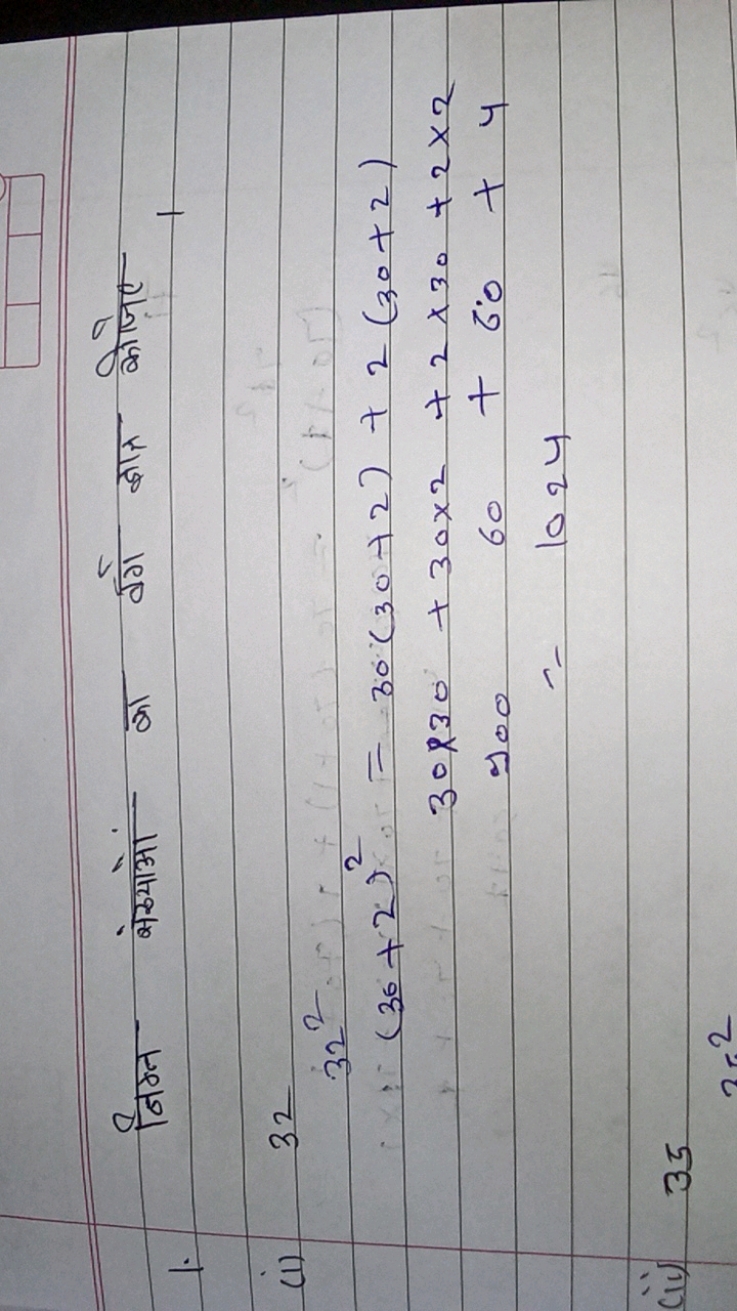 1. निम्न संख्याओं का वर्ग ज्ञात कीजिए ।
(i) 32
32²
(30+2)² = 30(30+2) + 2(30+2)
30×30 + 30×2 + 2×30 + 2×2
900 60 + 60 + 4
= 1024
(ii) 35
35²